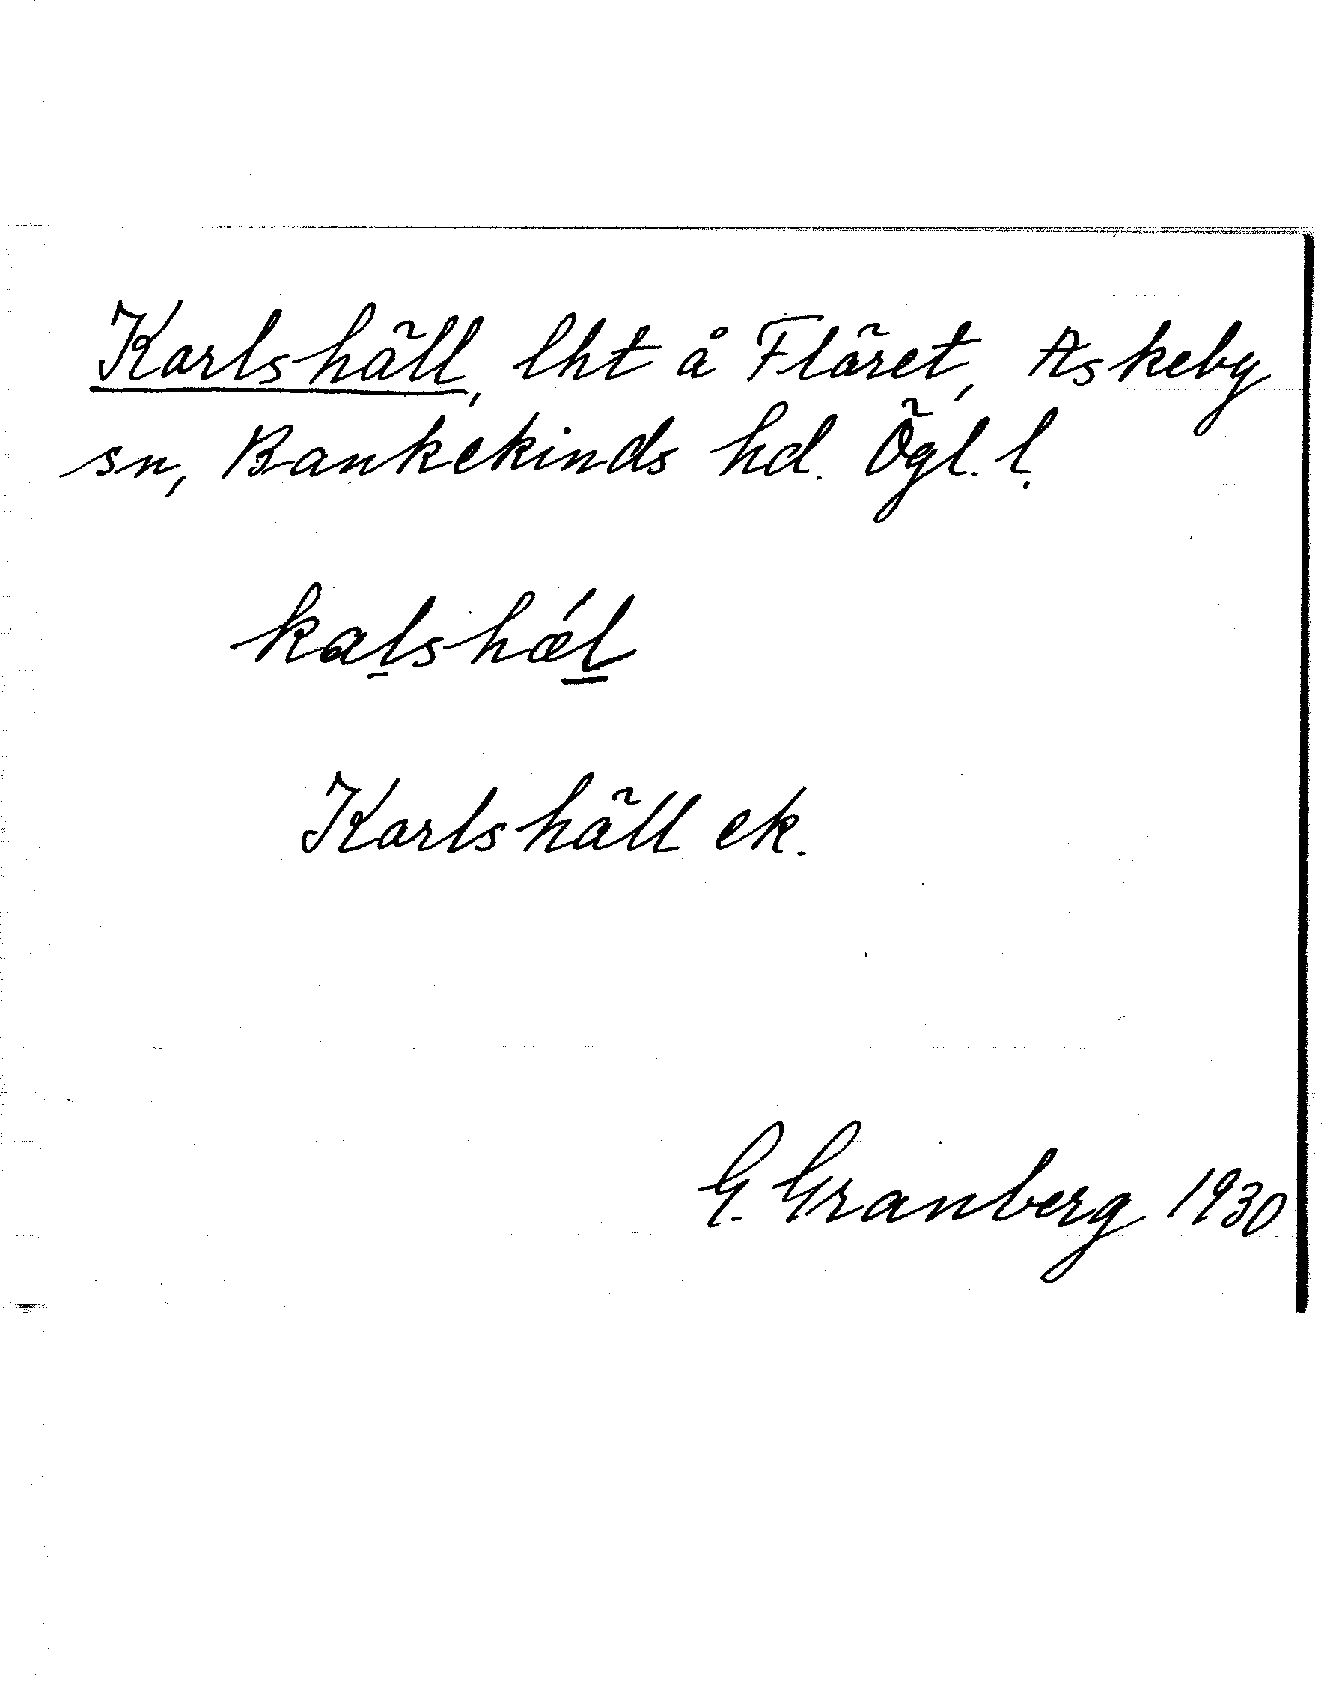 Karlshäll, lht å Fläret, Askeby
sn, Bankekinds hd. Ögl. l.
kalshǽl
Karlshäll ek.
G. Granberg 1930